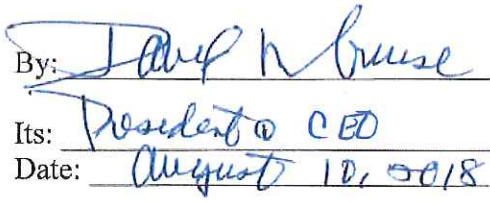 By: David
Its: President & CEO
Date: August 10, 2018